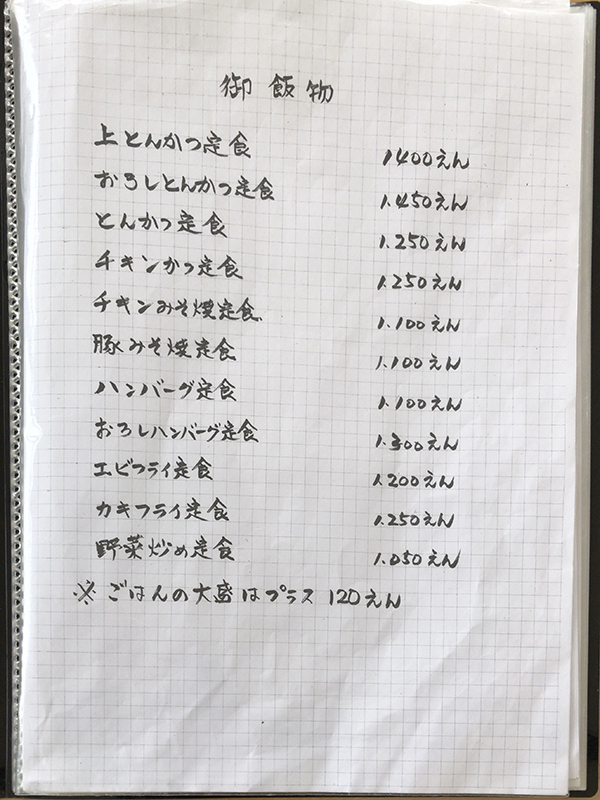 御飯物
上とんかつ定食 1400えん
おろしとんかつ定食 1.450えん
とんかつ定食 1.250えん
チキンかつ定食 1.250えん
チキンみそ焼定食 1.100えん
豚みそ焼定食 1.100えん
ハンバーグ定食 1.100えん
おろしハンバーグ定食 1.300えん
エビフライ定食 1.200えん
カキフライ定食 1.250えん
野菜炒め定食 1.050えん
※ごはんの大盛はプラス 120えん